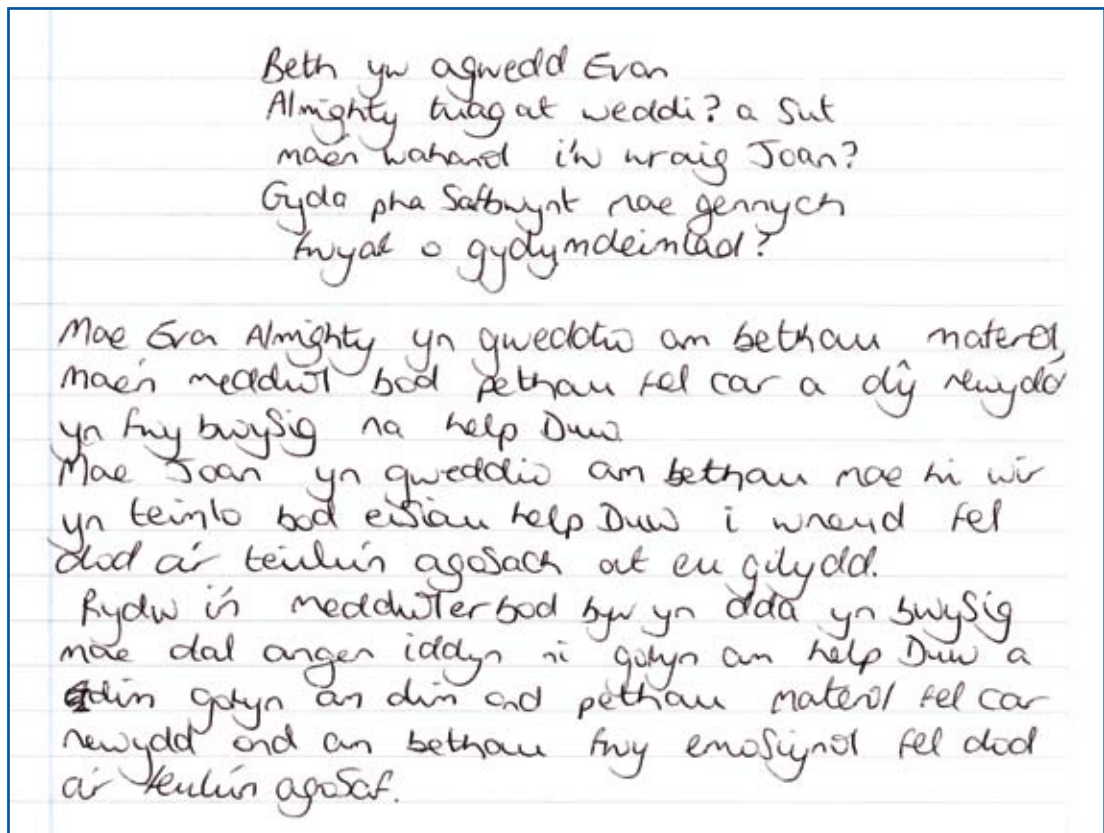 Beth yw agwedd Evan
Almighty tuag at weddi? a Sut
mae'n wahanol i'w wraig Joan?
Gyda pha Safbwynt mae gennych
fwyaf o gydymdeimlad?
Mae Evan Almighty yn gweddïo am bethau materol,
mae'n meddwl bod pethau fel car a dŷ newydd
yn fwy bwysig na help Duw.
Mae Joan yn gweddïo am bethau mae hi wir
yn teimlo bod eisiau help Duw i wneud fel
dod a'r teulu'n agosach at eu gilydd.
Rydw i'n meddwl er bod byw yn dda yn bwysig
mae dal angen iddyn ni gofyn am help Duw a
dim gofyn an dim ond pethau materol fel car
newydd ond an bethau fwy emosiynol fel dod
a'r teulu'n agosaf.